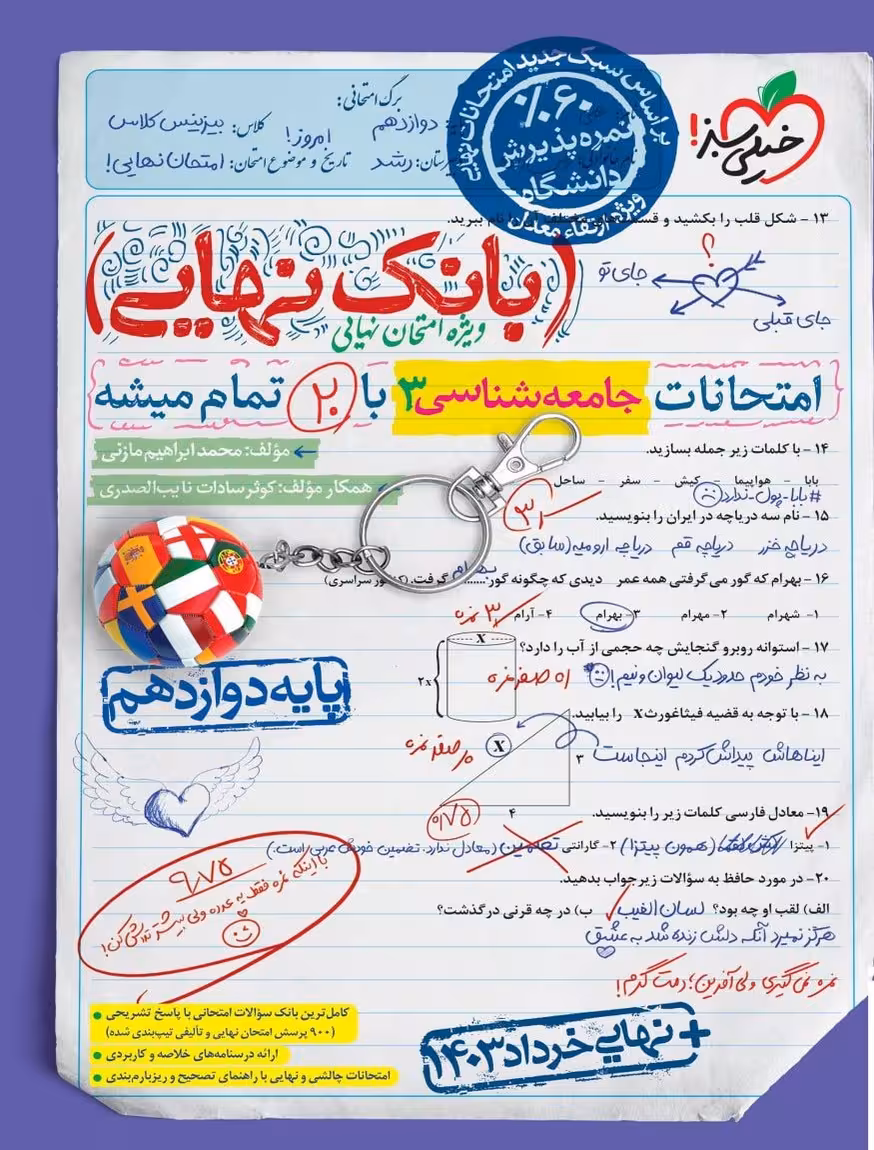 خیلی سبز!
بر اساس سبک جدید امتحانات نهایی
٪۶۰
نمره پذیرش
دانشگاه
ویژه ارتقاء معدل
برگ امتحانی:
دوازدهم
کلاس: بیزینس کلاس
دبیرستان: رشد
امروز!
تاریخ و موضوع امتحان: امتحان نهایی!
۱۳ - شکل قلب را بکشید و قسمت‌های مختلف آن را نام ببرید.
؟
جای تو
جای قبلی
(بانک نهایی)
ویژه امتحان نهایی
امتحانات جامعه‌شناسی۳ با ۲۰ تمام میشه
مؤلف: محمد ابراهیم مازنی
همکار مؤلف: کوثر سادات نایب‌الصدری
۱۴ - با کلمات زیر جمله بسازید.
بابا - هواپیما - کیش - سفر - ساحل
#بابا-پول-ندارد
۱۵ - نام سه دریاچه در ایران را بنویسید.
۳
دریاچه خزر دریاچه قم دریاچه ارومیه (سابق)
۱۶ - بهرام که گور می‌گرفتی همه عمر دیدی که چگونه گور بهرام گرفت. (کنکور سراسری)
۱- شهرام ۲- مهرام ۳- بهرام ۴- آرام
۳ نمره
۱۷ - استوانه روبرو گنجایش چه حجمی از آب را دارد؟
X
۲x
به نظر خودم حدود یک لیوان و نیم!
۰ صفر نمره
۱۸ - با توجه به قضیه فیثاغورث X را بیابید.
X
۳
۴
ایناهاش پیداش کردم اینجاست
۰ صفر نمره
پایه دوازدهم
۱۹- معادل فارسی کلمات زیر را بنویسید.
۰/۷۵
۱- پیتزا (همون پیتزا) ۲- گارانتی تضمین (معادل ندارد. تضمین خودش عربی است.)
۲۰- در مورد حافظ به سؤالات زیر جواب بدهید.
الف) لقب او چه بود؟ لسان الغیب ب) در چه قرنی درگذشت؟
هرگز نمیرد آنکه دلش زنده شد به عشق
نمره نمی‌گیری ولی آفرین؛ دمت گرم!
۹/۷۵
با اینکه نمره فقط یه عدده ولی بیشتر تلاش کن!
کامل‌ترین بانک سؤالات امتحانی با پاسخ تشریحی
(۹۰۰ پرسش امتحان نهایی و تألیفی تیپ‌بندی شده)
ارائه درسنامه‌های خلاصه و کاربردی
امتحانات چالشی و نهایی با راهنمای تصحیح و ریزبارم‌بندی
+ نهایی خرداد ۱۴۰۳